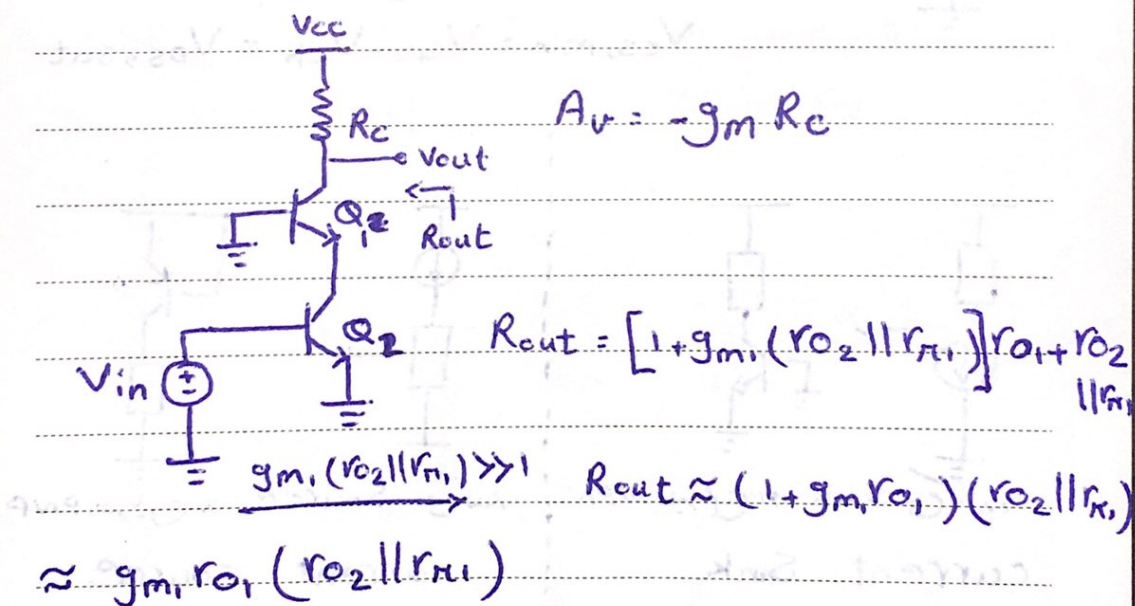 Vcc
Rc
Av = -gm Rc
Vout
Q1
Rout
Q2
Rout = [1+gm1(ro2||rπ1)]ro1+ro2
||rπ1
Vin
gm1(ro2||rπ1)>>1
Rout ≈ (1+gm1ro1)(ro2||rπ1)
≈ gm1ro1(ro2||rπ1)